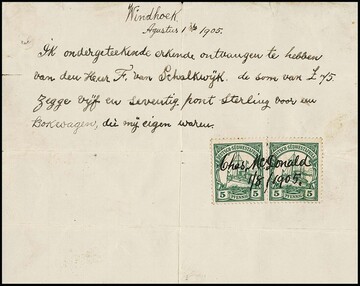 Windhoek
Agustus 1ste 1905.
Ik ondergeteekende erkende ontvangen te hebben
van den Heer F. van Schalkwijk. de som van £ 75
Zegge vijf en seventig pont Sterling voor een
Bokwagen, die mij eigen waren.
Chas. McDonald
1/8/1905.
5 PFENNIG 5
5 PFENNIG 5